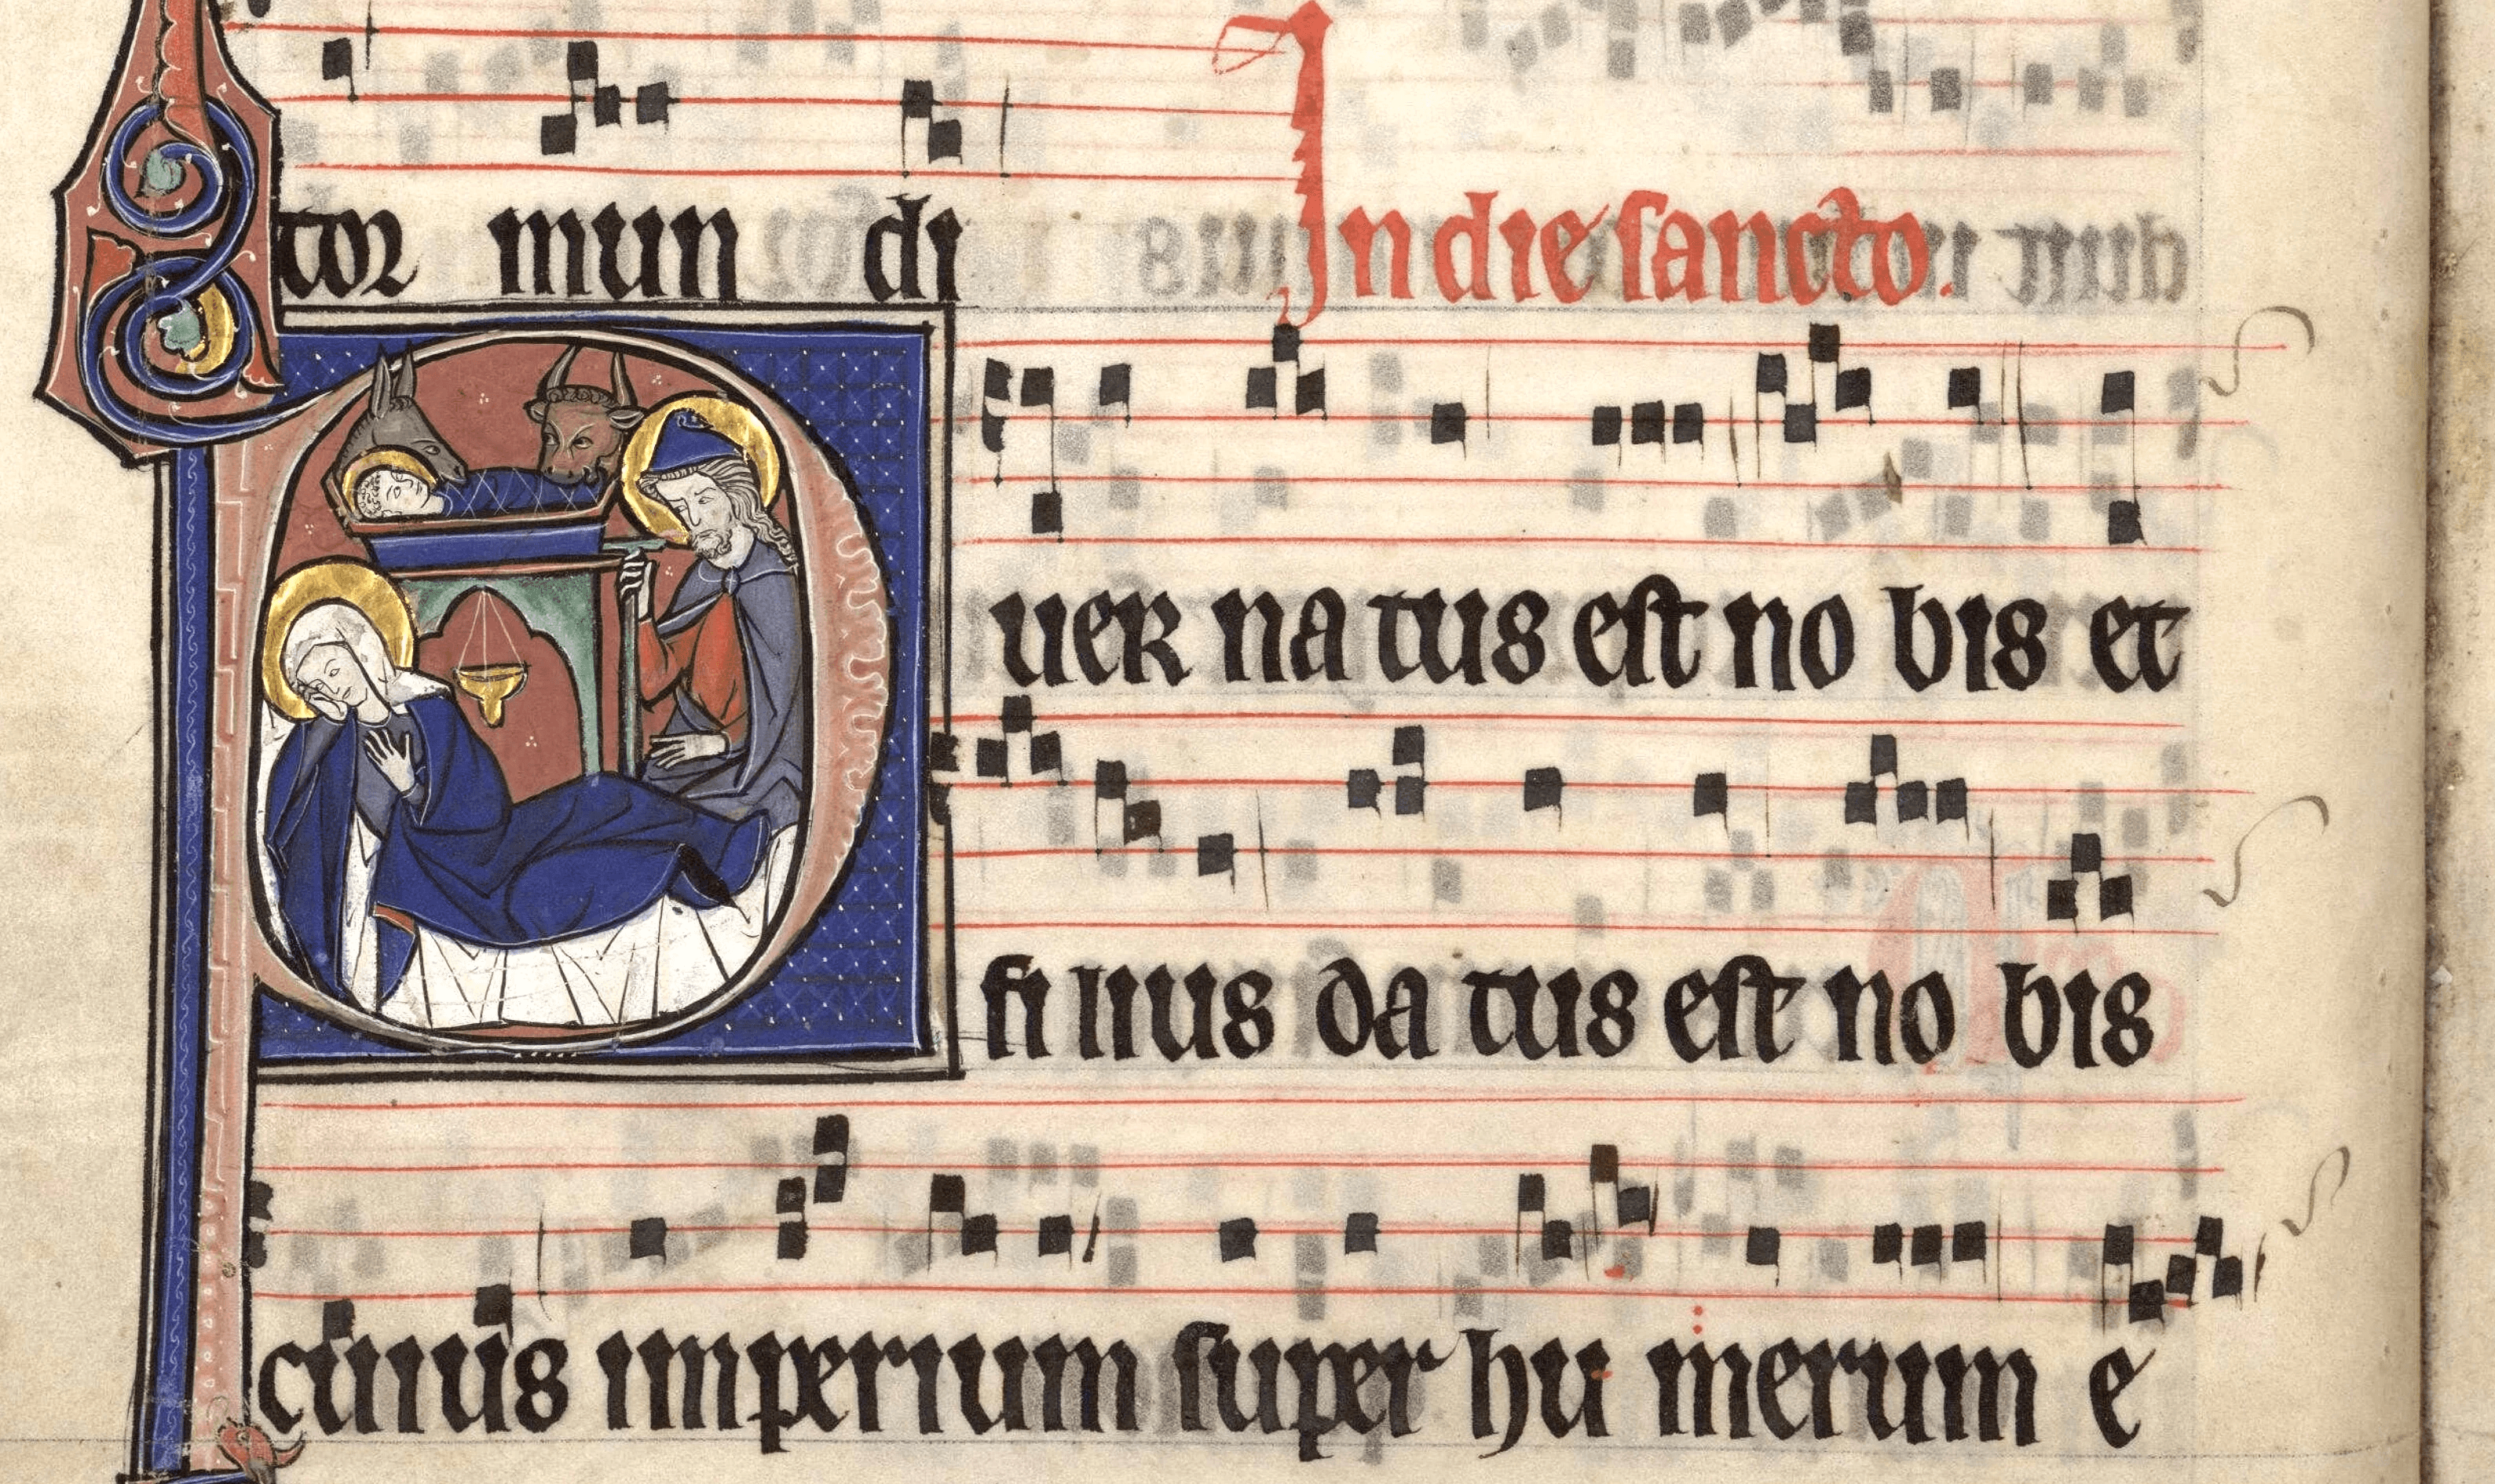 tor mun di In die sancto.
Puer na tus est no bis et
fi lius da tus est no bis
cuius imperium super hu merum e